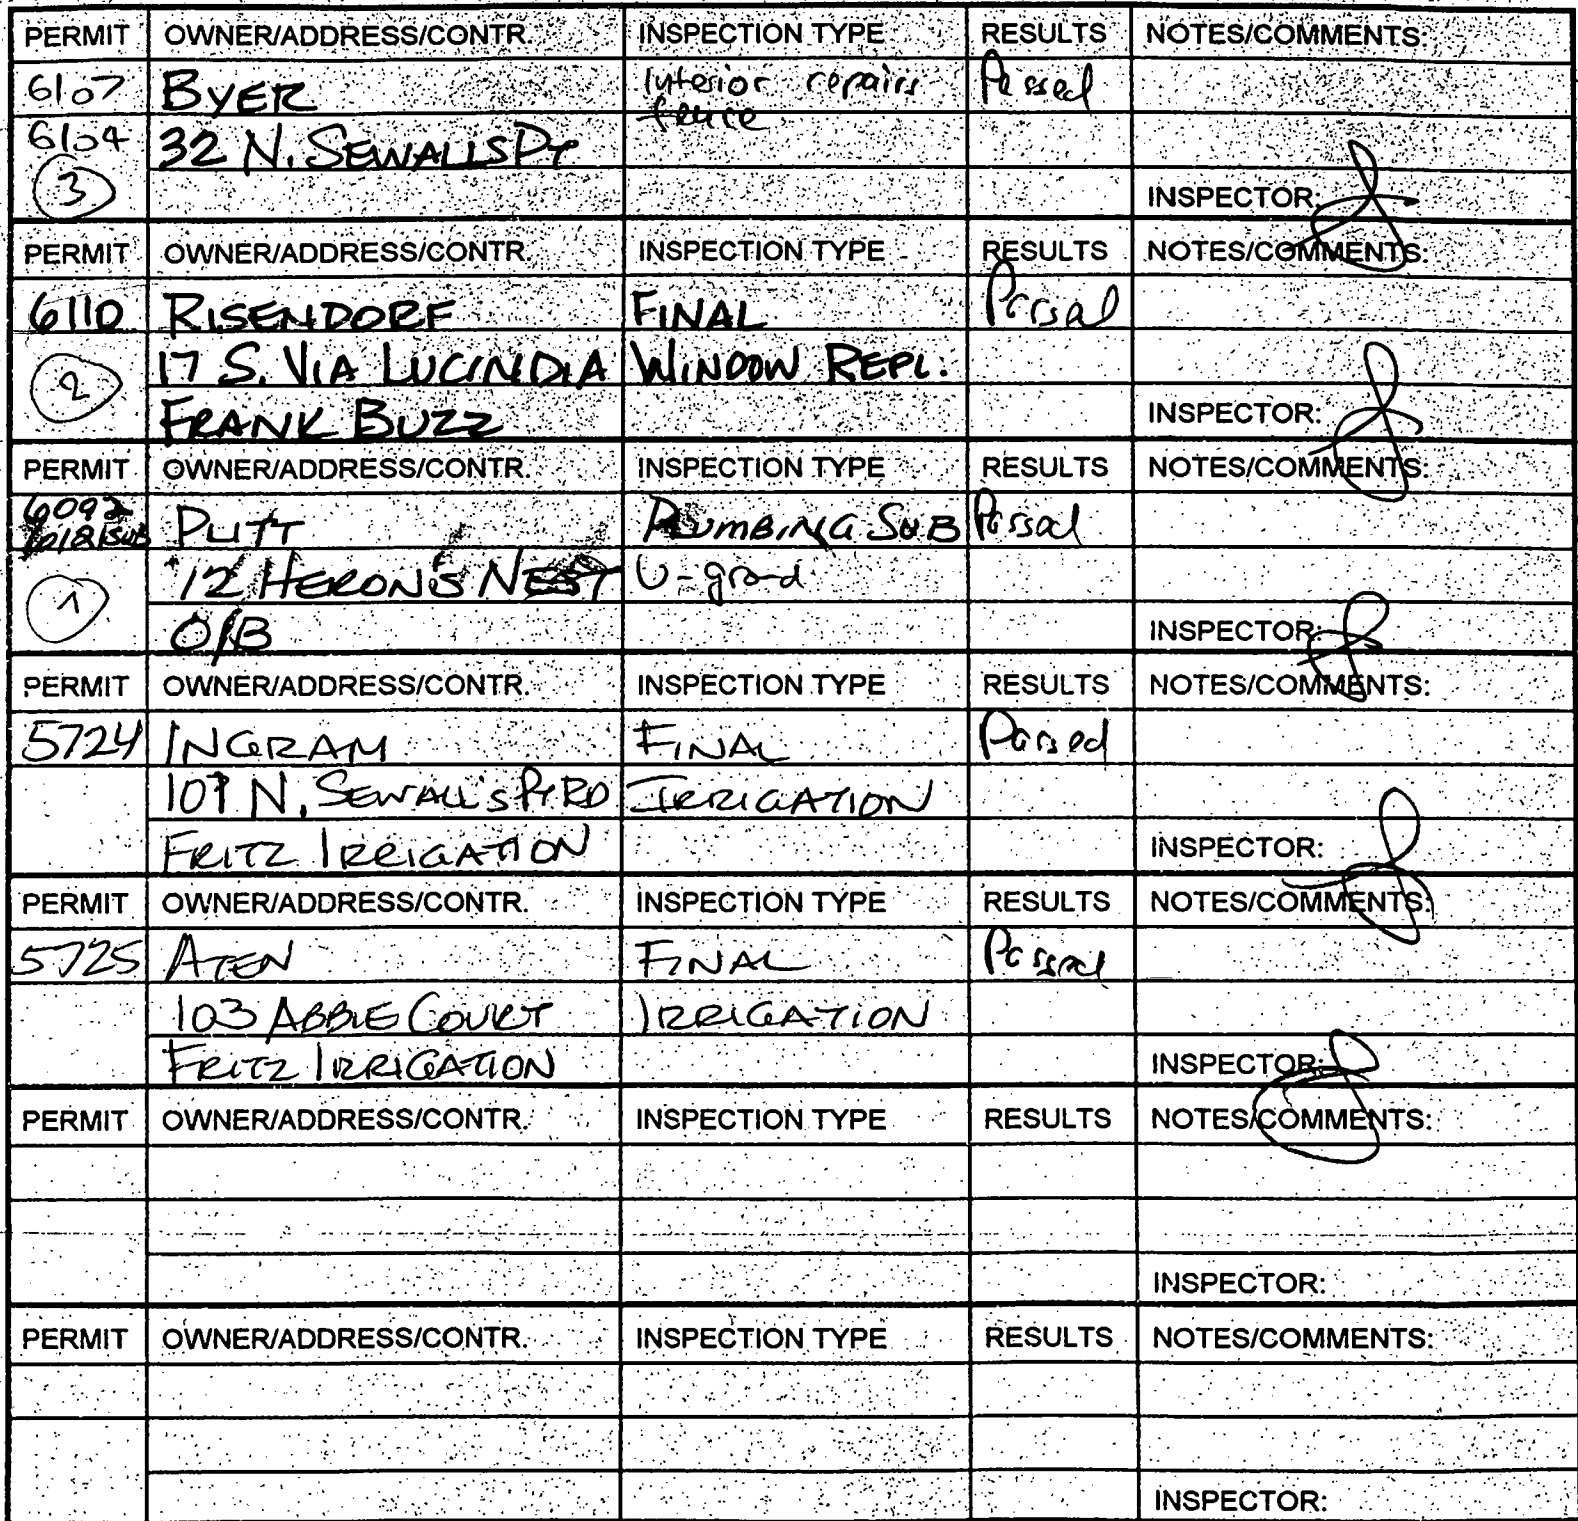 PERMIT OWNER/ADDRESS/CONTR. INSPECTION TYPE RESULTS NOTES/COMMENTS:
6107 BYER Interior repairs Passed
fence
6104 32 N. SEWALLS PT
3 INSPECTOR:
PERMIT OWNER/ADDRESS/CONTR. INSPECTION TYPE RESULTS NOTES/COMMENTS:
6110 RISENDORF FINAL Passed
2 17 S. VIA LUCINDIA WINDOW REPL.
FRANK BUZZ INSPECTOR:
PERMIT OWNER/ADDRESS/CONTR. INSPECTION TYPE RESULTS NOTES/COMMENTS:
6092 PUTT PLUMBING SUB Passed
1 12 HERON'S NEST U-grnd
O/B INSPECTOR:
PERMIT OWNER/ADDRESS/CONTR. INSPECTION TYPE RESULTS NOTES/COMMENTS:
5724 INGRAM FINAL Passed
N. SEWALL'S PT RD IRRIGATION
FRITZ IRRIGATION INSPECTOR:
PERMIT OWNER/ADDRESS/CONTR. INSPECTION TYPE RESULTS NOTES/COMMENTS:
5725 ATEN FINAL Passed
103 ABBIE COURT IRRIGATION
FRITZ IRRIGATION INSPECTOR:
PERMIT OWNER/ADDRESS/CONTR. INSPECTION TYPE RESULTS NOTES/COMMENTS:
INSPECTOR:
PERMIT OWNER/ADDRESS/CONTR. INSPECTION TYPE RESULTS NOTES/COMMENTS:
INSPECTOR: